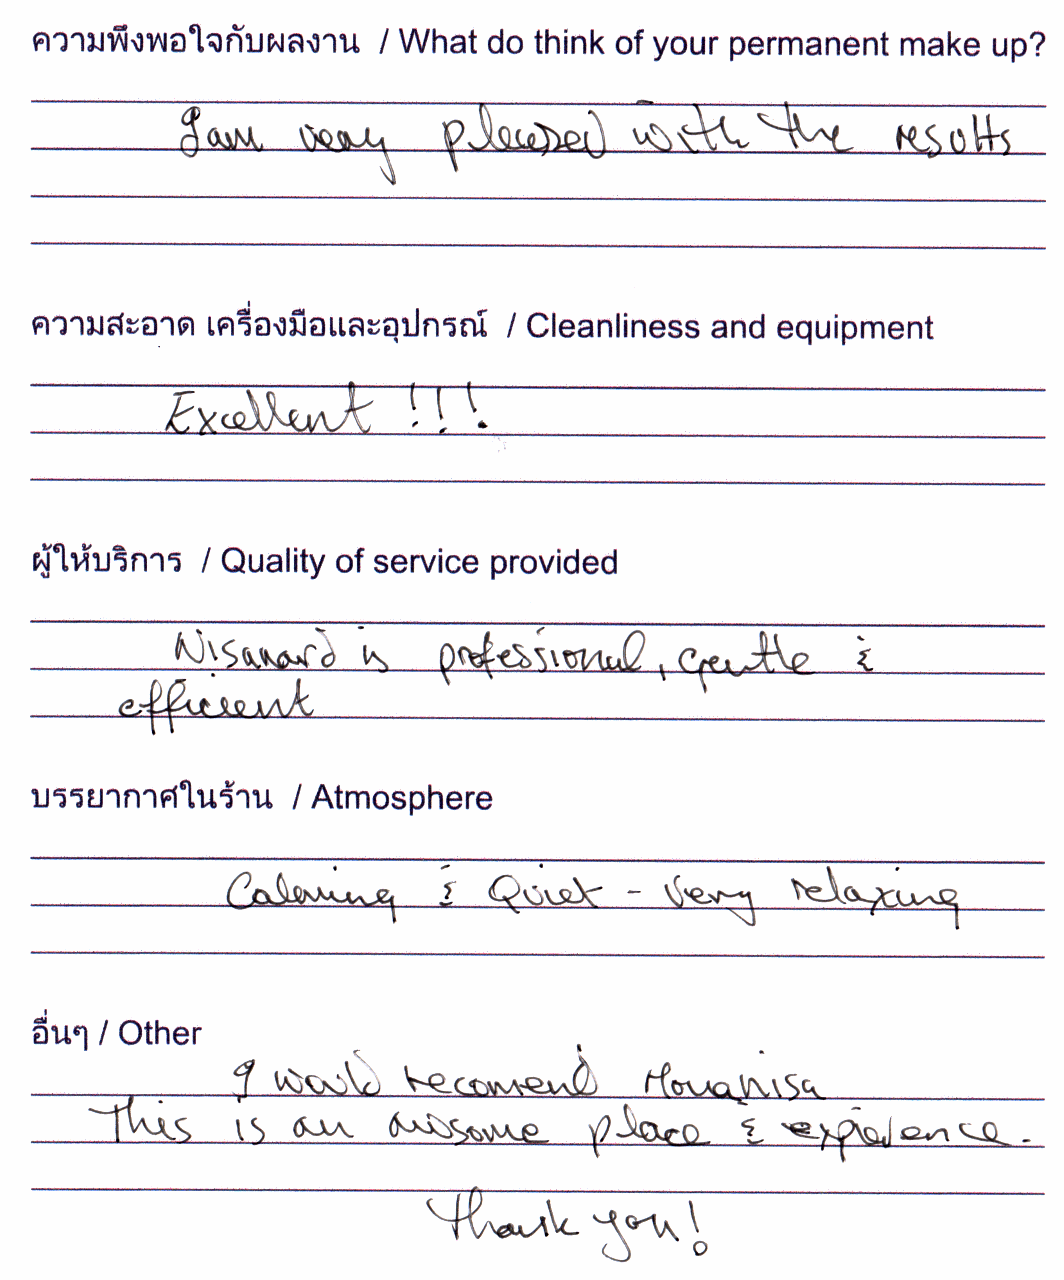 ความพึงพอใจกับผลงาน / What do think of your permanent make up?
I am very pleased with the results
ความสะอาด เครื่องมือและอุปกรณ์ / Cleanliness and equipment
Excellent !!!
ผู้ให้บริการ / Quality of service provided
Nisanard is professional, gentle &
efficient
บรรยากาศในร้าน / Atmosphere
Calming & Quiet - Very relaxing
อื่นๆ / Other
I would recomend
This is an awsome place & expierence.
Thank you!